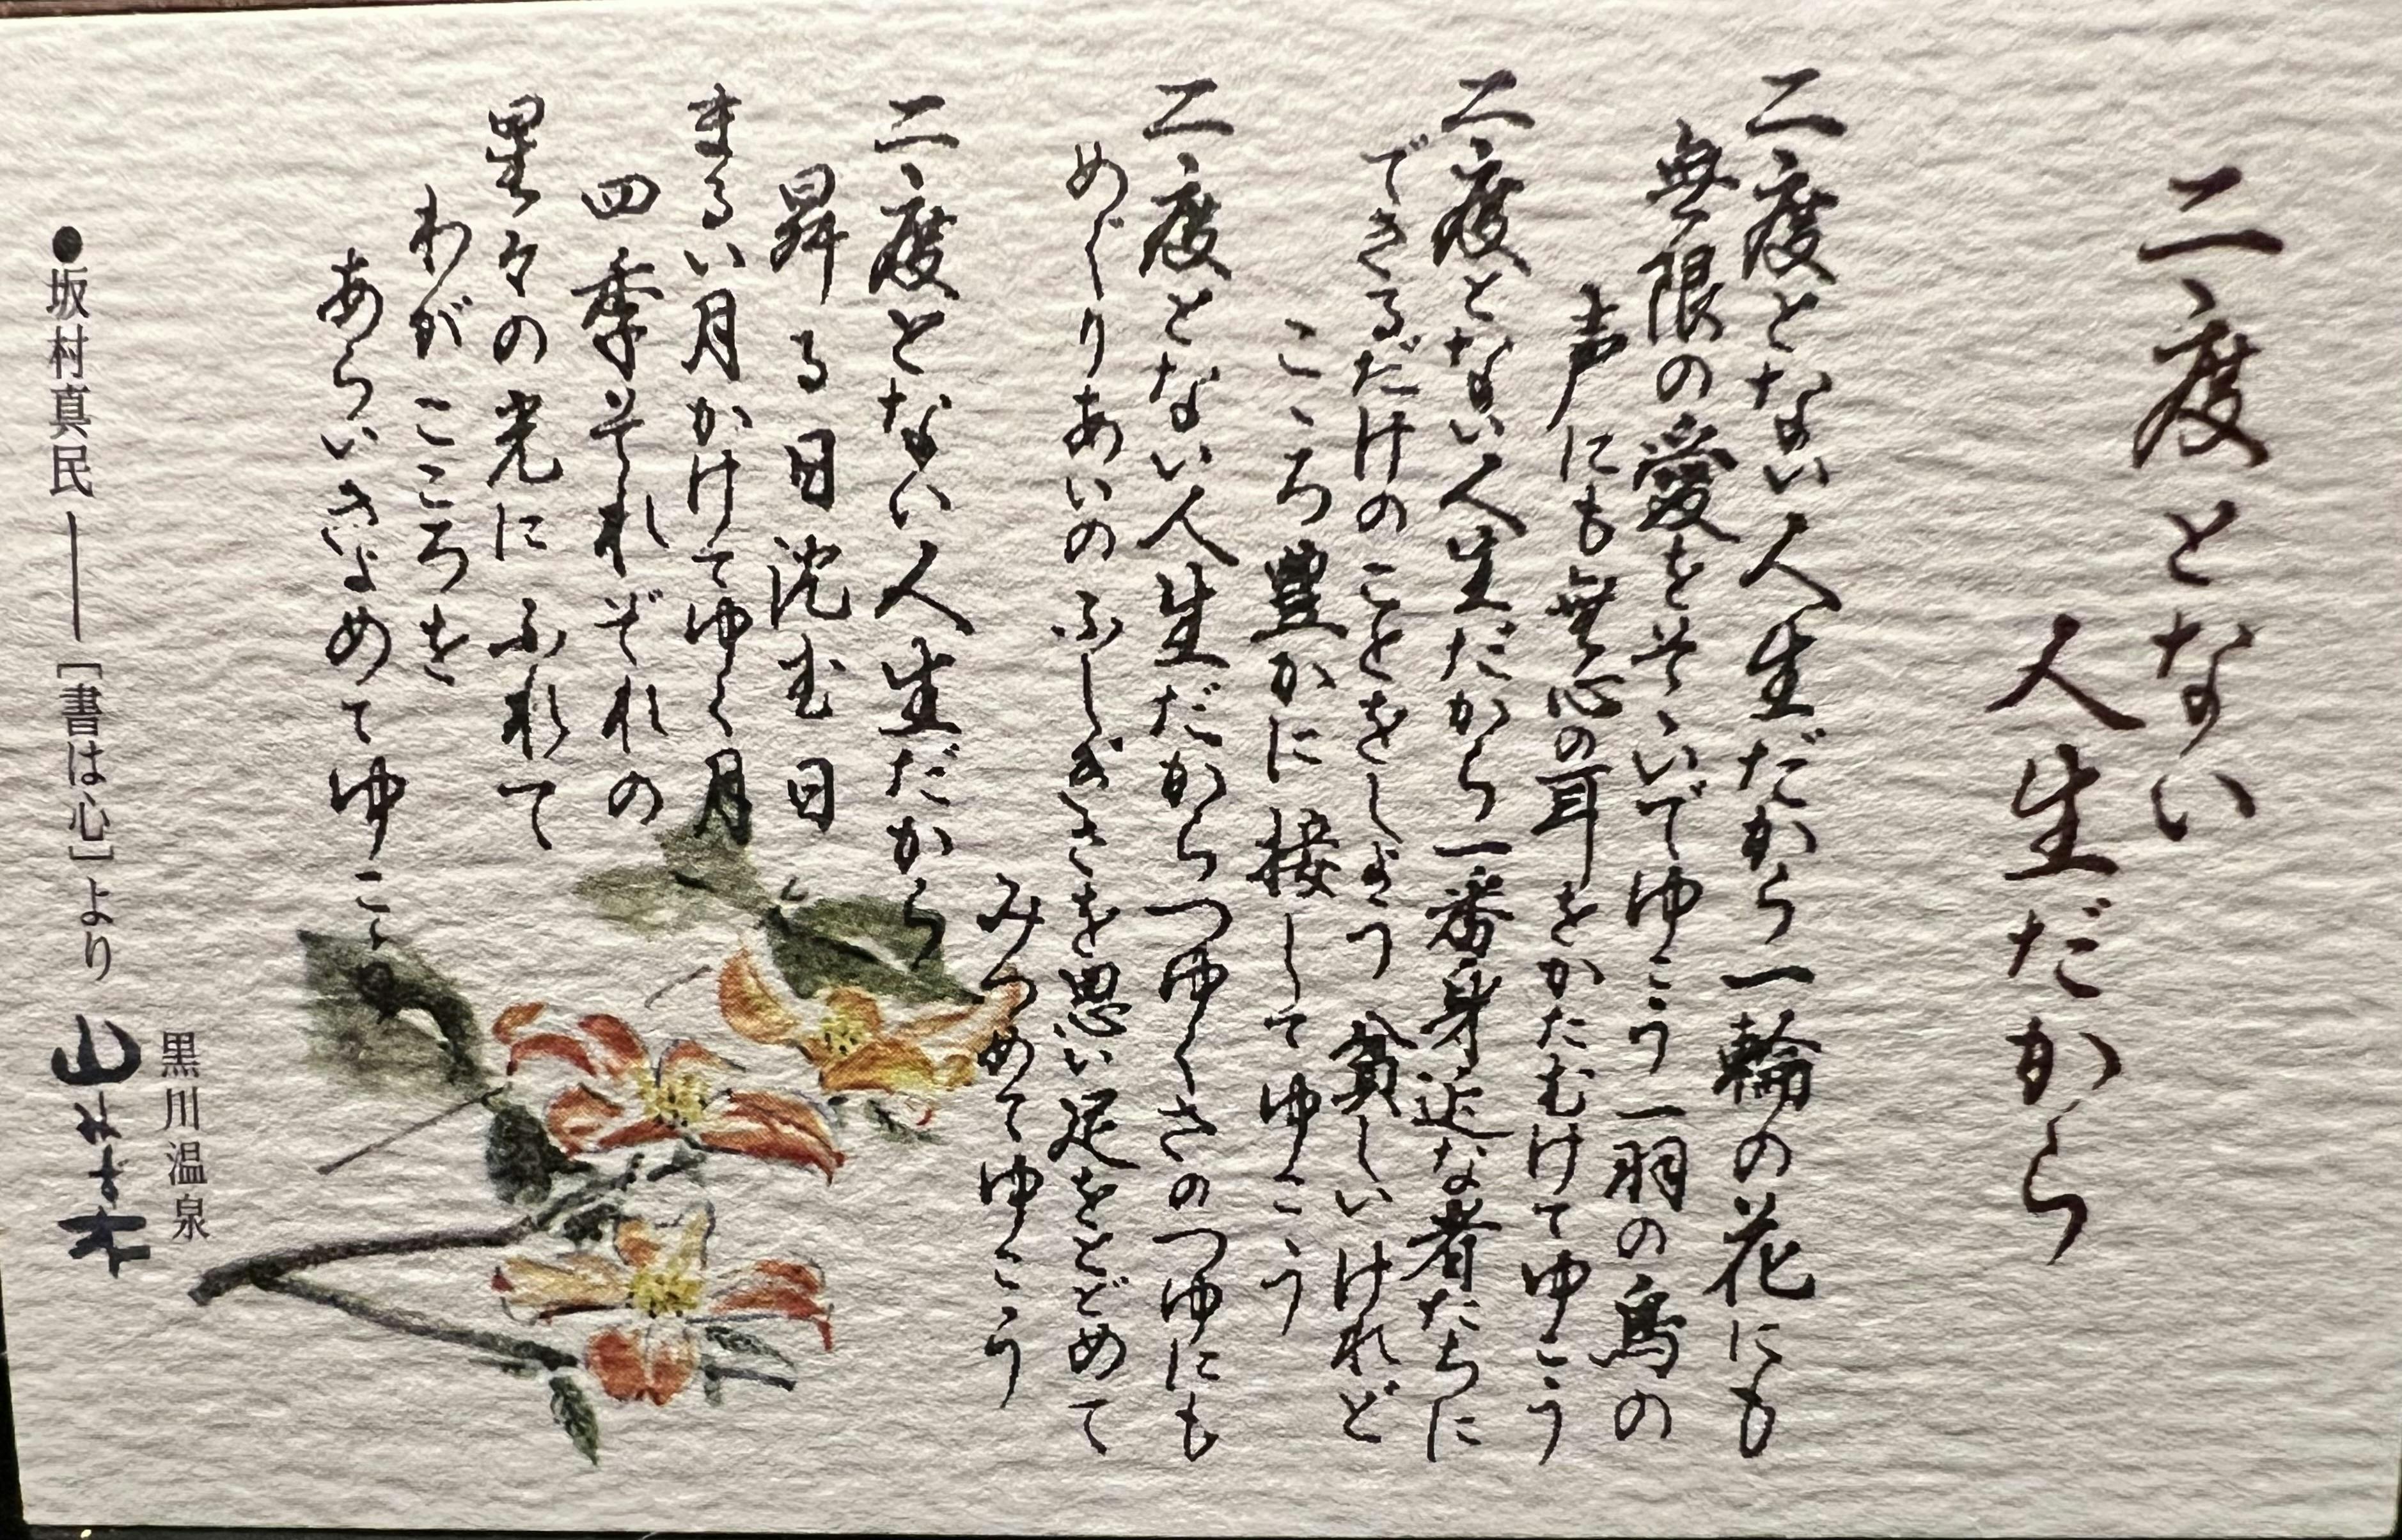 二度とない
人生だから
二度とない人生だから一輪の花にも
無限の愛をそゝいでゆこう一羽の鳥の
声にも無心の耳をかたむけてゆこう
二度とない人生だから一番身近な者たちに
できるだけのことをしよう 貧しいけれど
こゝろ豊かに接してゆこう
二度とない人生だからつゆくさのつゆにも
めぐりあいのふしぎさを思い足をとどめて
みつめてゆこう
二度とない人生だから
昇る日沈む日
まるい月かけてゆく月
四季それぞれの
星々の光にふれて
わがこころを
あらいきよめてゆこう
●坂村真民——[書は心]より
黒川温泉